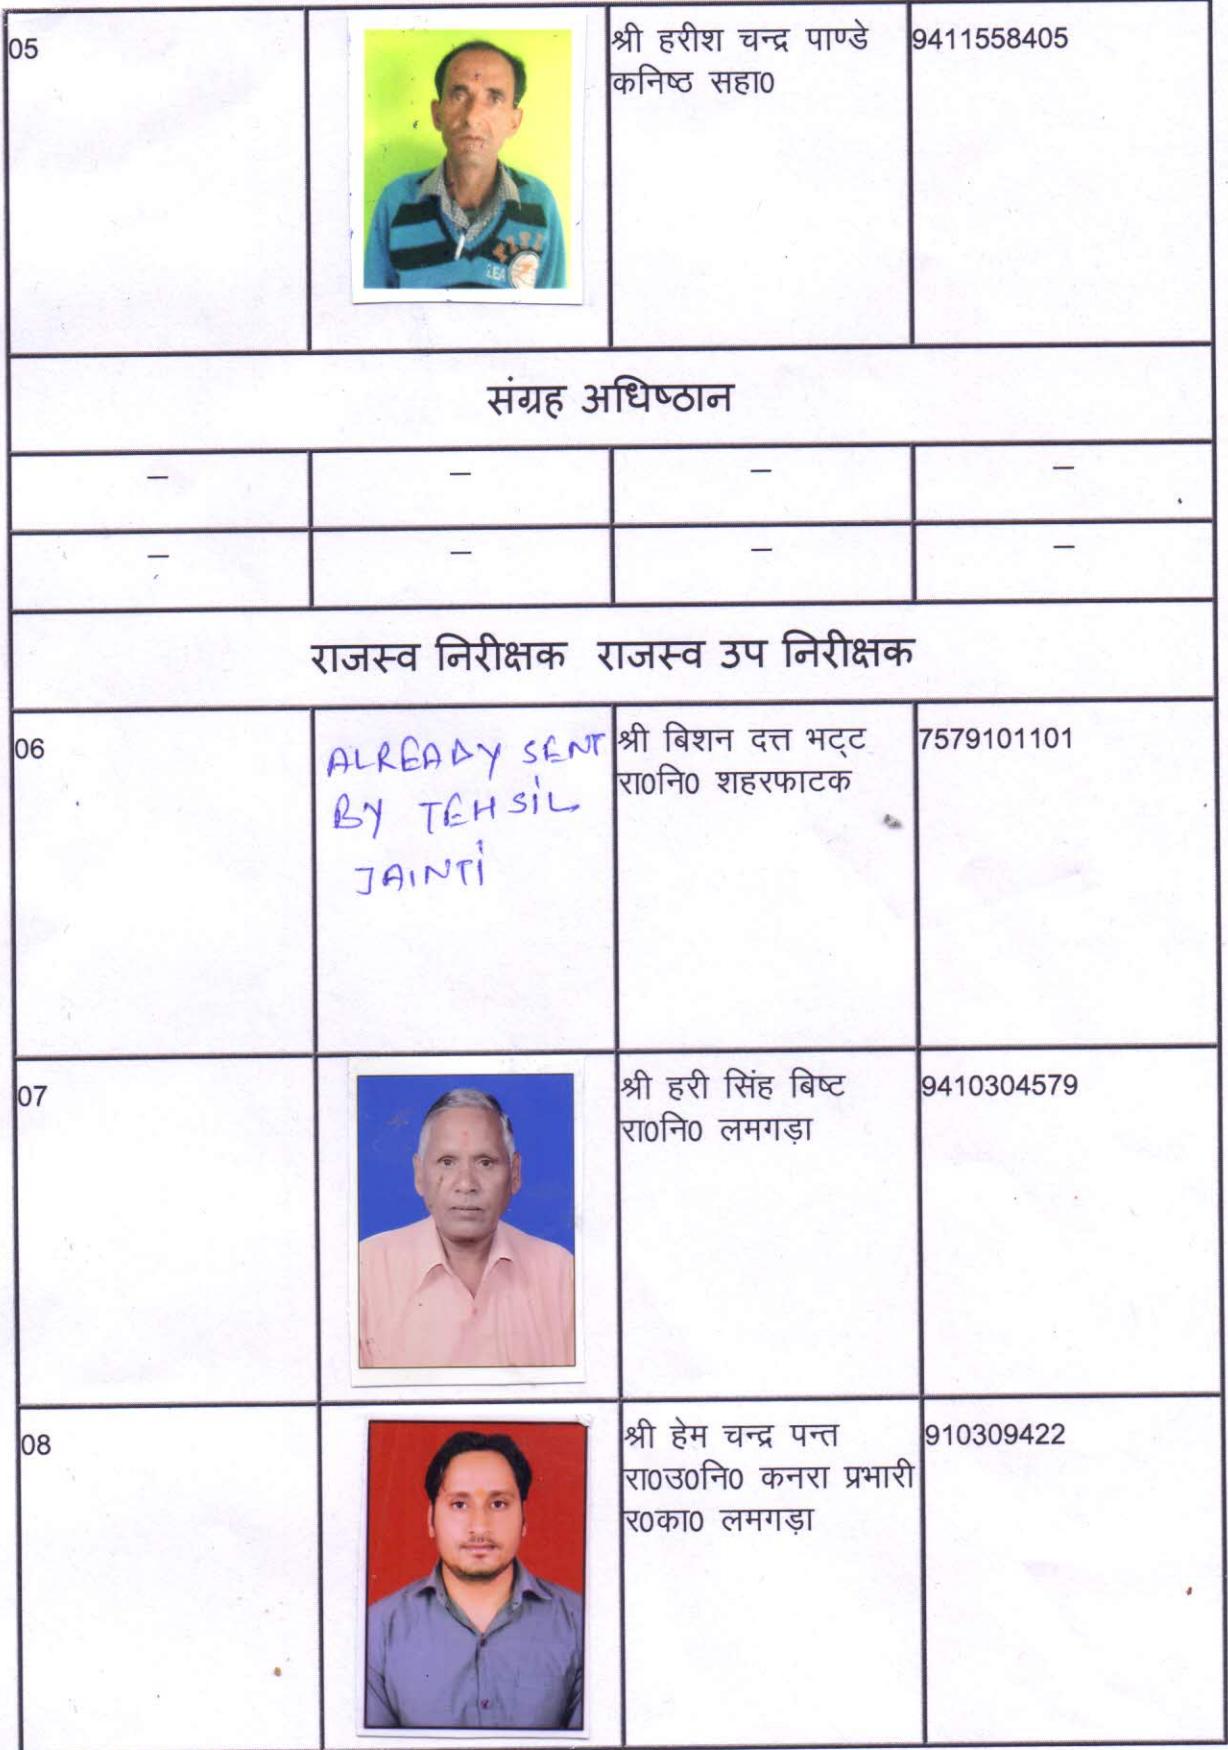 05
श्री हरीश चन्द्र पाण्डे
कनिष्ठ सहा0
9411558405
LEA
संग्रह अधिष्ठान
– – – –
– – – –
राजस्व निरीक्षक राजस्व उप निरीक्षक
06
ALREADY SENT
BY TEHSIL
JAINTI
श्री बिशन दत्त भट्ट
रा0नि0 शहरफाटक
7579101101
07
श्री हरी सिंह बिष्ट
रा0नि0 लमगड़ा
9410304579
08
श्री हेम चन्द्र पन्त
रा0उ0नि0 कनरा प्रभारी
र0का0 लमगड़ा
910309422